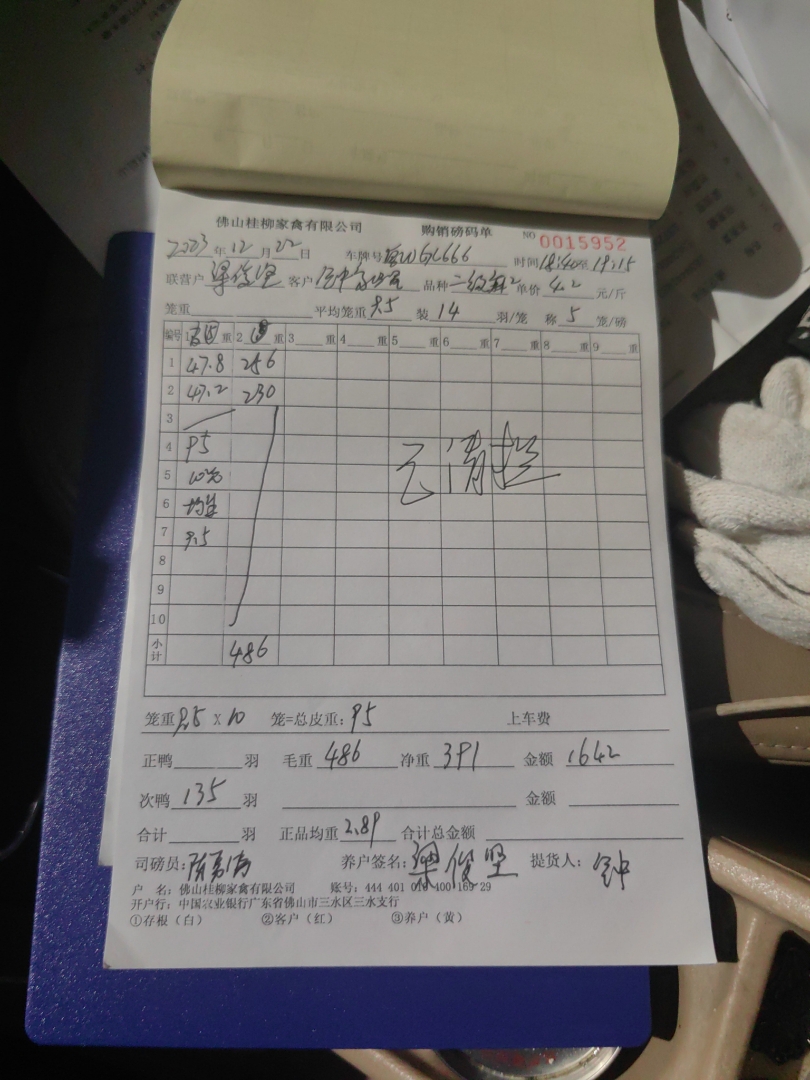 佛山桂柳家禽有限公司 购销磅码单 NO 0015952
2023年12月22日 车牌号 GL666 时间18:40至19:15
联营户 梁俊坚 客户 品种 二级 单价4.2元/斤
笼重 平均笼重9.5 装14羽/笼 称5笼/磅
编号 1 重 2 重 3 重 4 重 5 重 6 重 7 重 8 重 9 重
1 47.8 256
2 47.2 230
3
4 95
5 10笼
6 均重
7 9.5
8
9
10
已清栏
小计 486
笼重9.5×10 笼=总皮重:95 上车费
正鸭 羽 毛重486 净重391 金额1642
次鸭135羽 金额
合计 羽 正品均重2.89 合计总金额
司磅员: 养户签名:梁俊坚 提货人:钟
户 名:佛山桂柳家禽有限公司 账号:444 401 010 400 169 29
开户行:中国农业银行广东省佛山市三水区三水支行
①存根(白) ②客户(红) ③养户(黄)